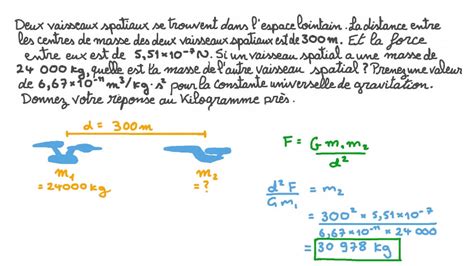 Deux vaisseaux spatiaux se trouvent dans l'espace lointain. La distance entre
les centres de masse des deux vaisseaux spatiaux est de 300 m. Et la force
entre eux est de 5,51×10⁻⁷ N. Si un vaisseau spatial a une masse de
24 000 kg, quelle est la masse de l'autre vaisseau spatial ? Prenez une valeur
de 6,67×10⁻¹¹ m³/kg·s² pour la constante universelle de gravitation.
Donnez votre réponse au Kilogramme près.
d = 300 m
m₁
= 24000 kg
m₂
= ?
F = G m₁ m₂ / d²
d² F / G m₁ = m₂
= 300² × 5,51×10⁻⁷ / 6,67×10⁻¹¹ × 24 000
= 30 978 kg